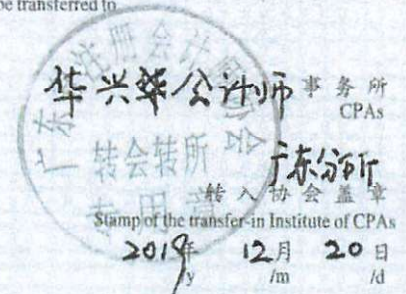 be transferred to
华兴华会计师 事务所
CPAs
广东分所
转入协会盖章
Stamp of the transfer-in Institute of CPAs
2019年 12月 20日
/y /m /d
广东注册会计师协会
转会转所
专用章